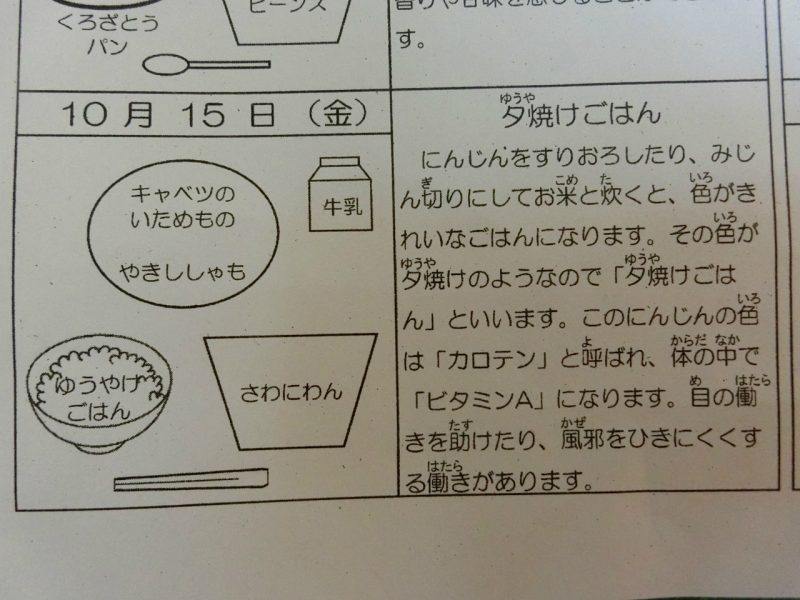 くろざとう
パン
ビーンズ
す。
10月 15日（金）
キャベツの
いためもの
やきししゃも
牛乳
ゆうやけ
ごはん
さわにわん
夕焼けごはん
にんじんをすりおろしたり、みじ
ん切りにしてお米と炊くと、色がき
れいなごはんになります。その色が
夕焼けのようなので「夕焼けごは
ん」といいます。このにんじんの色
は「カロテン」と呼ばれ、体の中で
「ビタミンA」になります。目の働
きを助けたり、風邪をひきにくくす
る働きがあります。